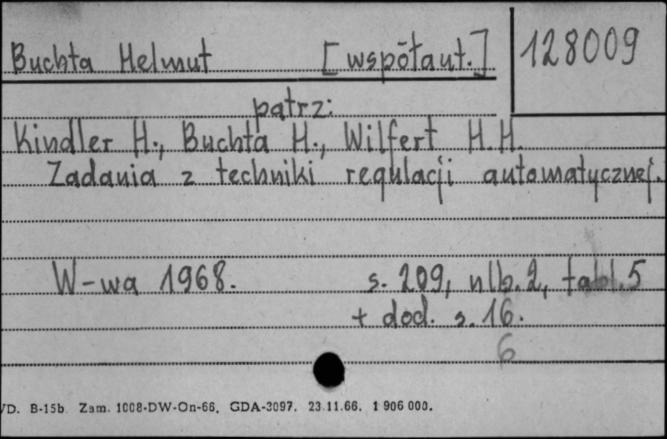 Buchta Helmut [współaut.] 128009
patrz:
Kindler H., Buchta H., Wilfert H.H.
Zadania z techniki regulacji automatycznej.
W-wa 1968. s. 209, nlb. 2, tabl. 5
+ dod. s. 16.
6
VD. B-15b. Zam. 1008-DW-On-66. GDA-3097. 23.11.66. 1 906 000.